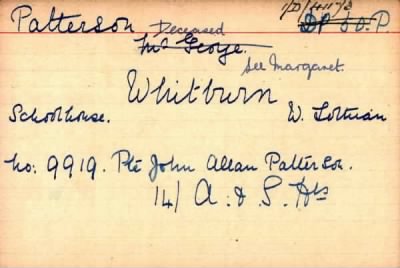 Patterson Deceased
Mr George.
See Margaret.
Whitburn
Schoolhouse. W. Lothian
No: 9919. Pte John Allan Patterson.
14/ A: & S. Hds